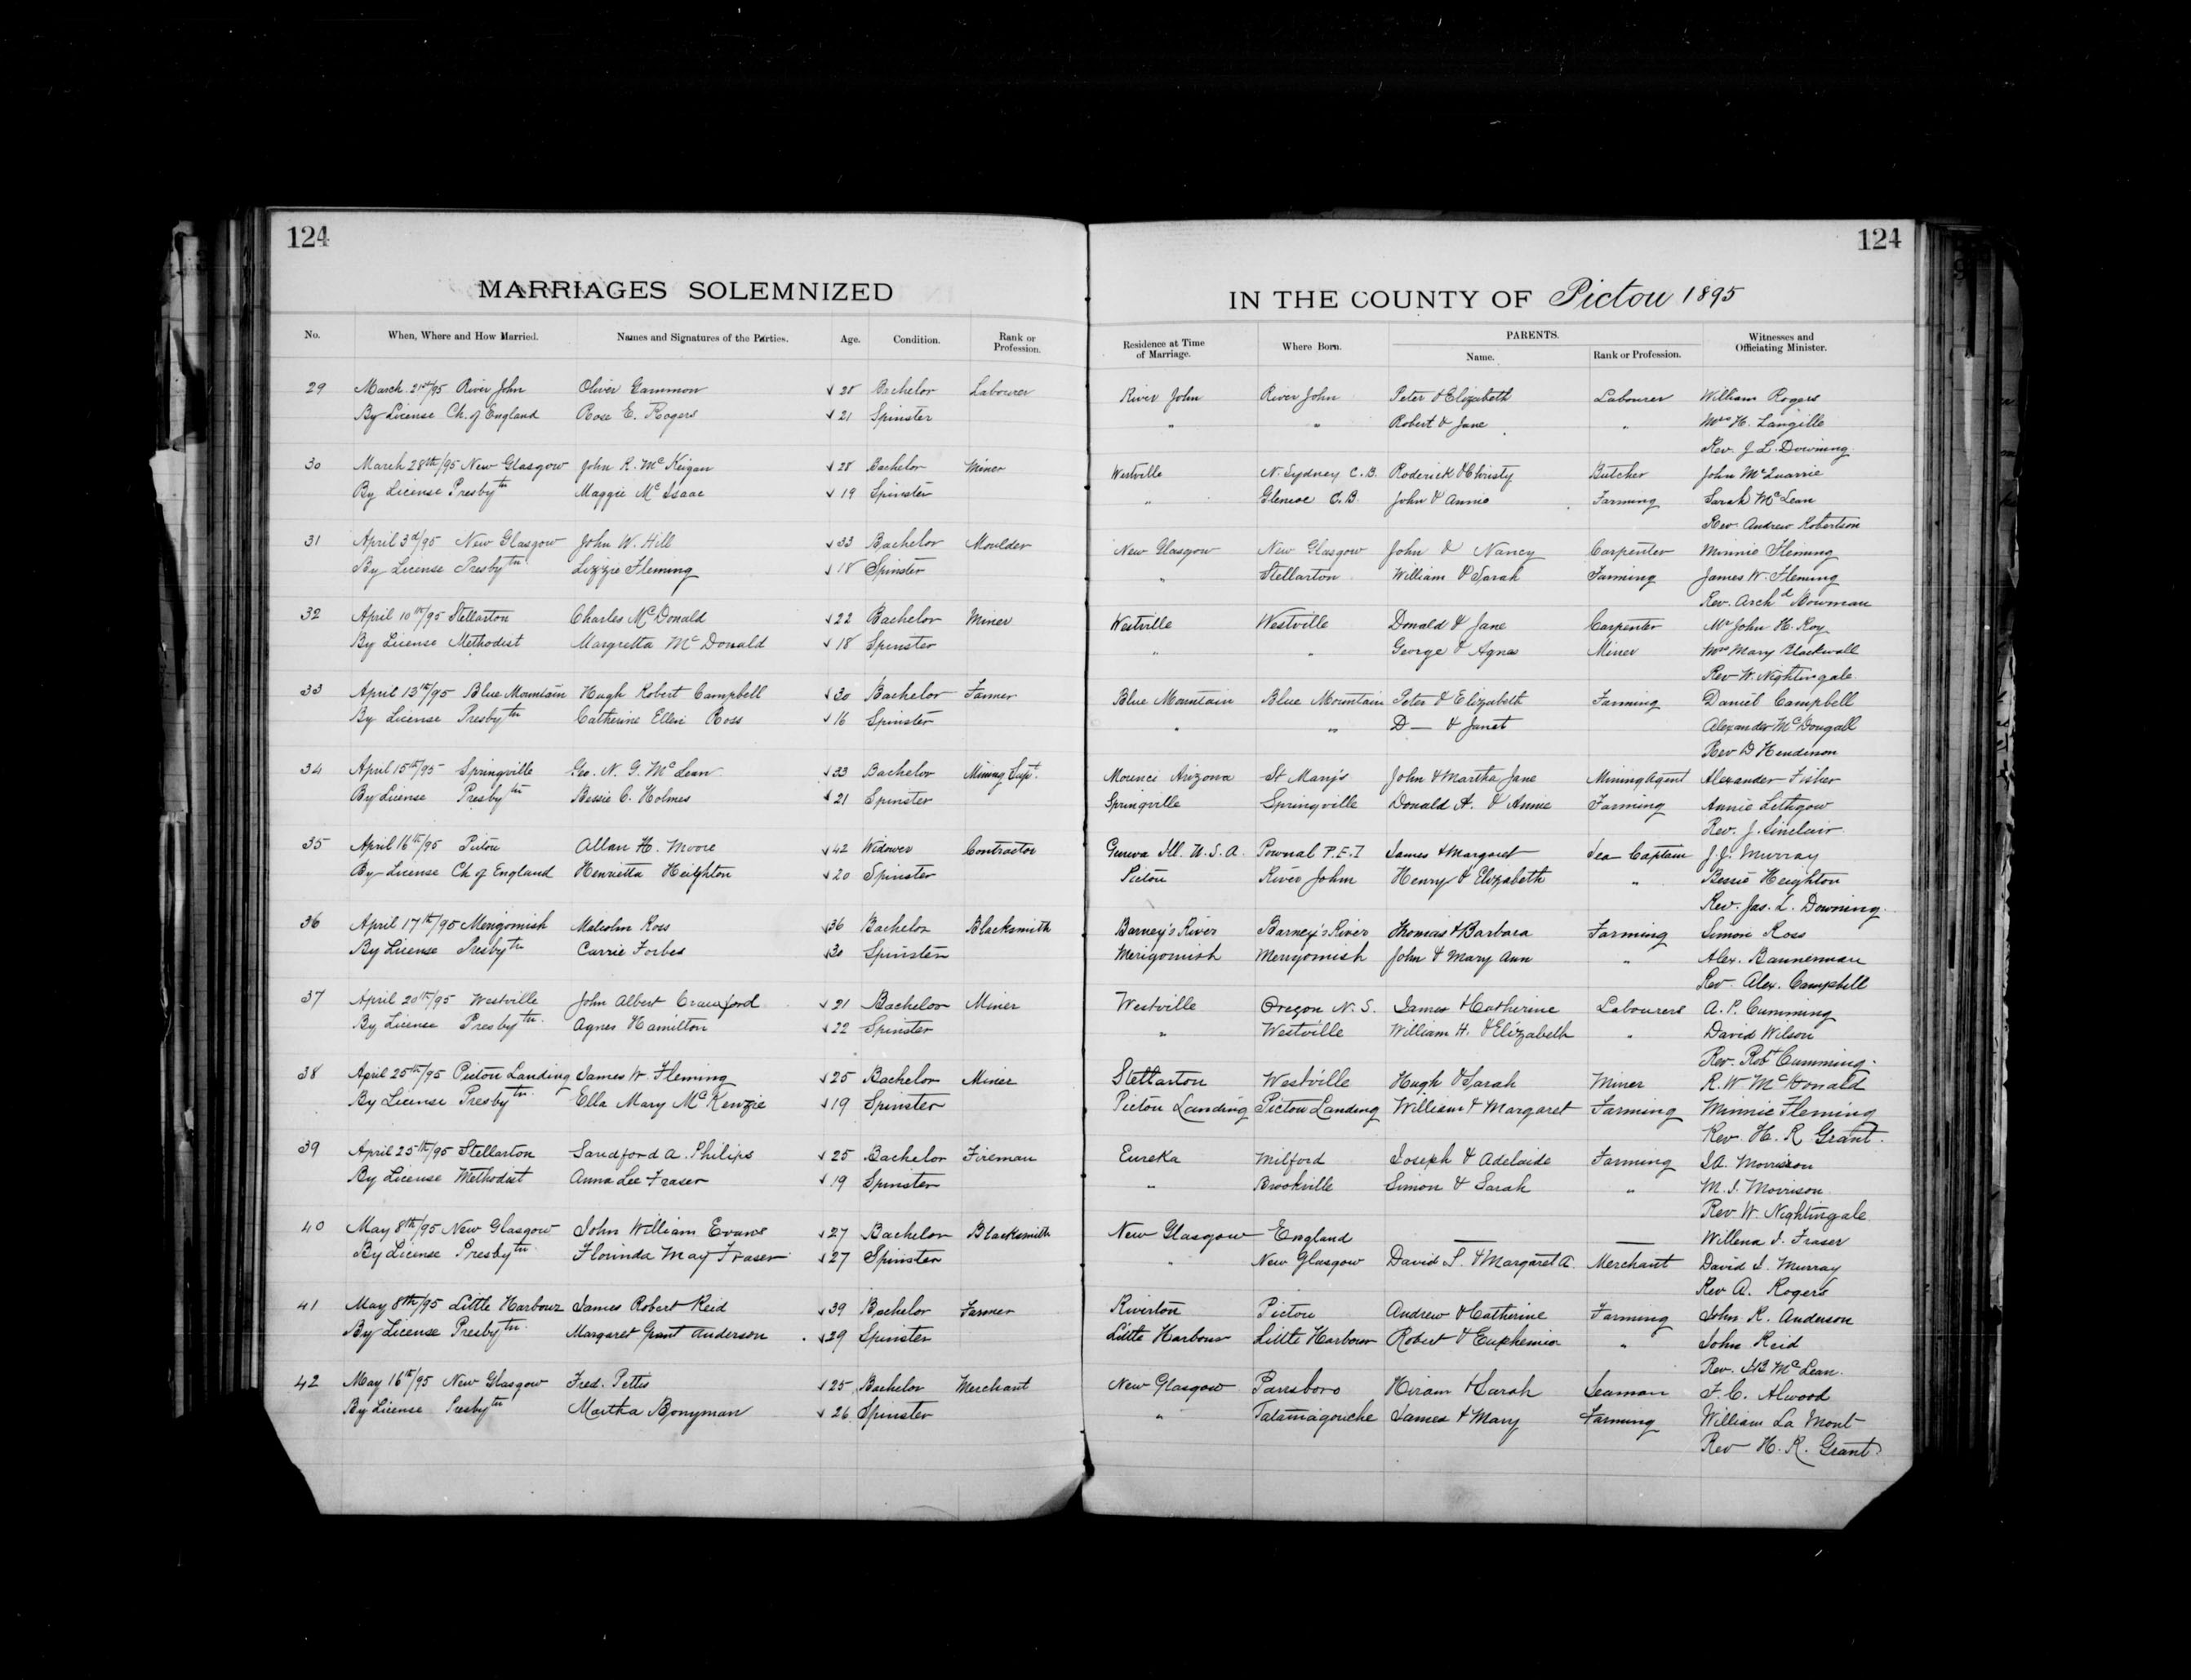 124
124
MARRIAGES SOLEMNIZED
IN THE COUNTY OF Pictou 1895
No. When, Where and How Married. Names and Signatures of the Parties. Age. Condition. Rank or Profession. Residence at Time of Marriage. Where Born. PARENTS. Name. Rank or Profession. Witnesses and Officiating Minister.
29 March 21st/95 River John Oliver Gammon 28 Bachelor Labourer River John River John Peter & Elizabeth Labourer William Rogers
By License Ch. of England Rose E. Rogers 21 Spinster " " Robert & Jane " Mrs H. Langille
Rev. J L. Downing
30 March 28th/95 New Glasgow John R. McKeigan 28 Bachelor Miner Westville N. Sydney C.B. Roderick & Christy Butcher John McQuarrie
By License Presbytn Maggie McIsaac 19 Spinster " Glencoe C.B. John & Annie Farming Sarah McLean
Rev. Andrew Robertson
31 April 3d/95 New Glasgow John W. Hill 33 Bachelor Moulder New Glasgow New Glasgow John & Nancy Carpenter Minnie Fleming
By License Presbytn Lizzie Fleming 18 Spinster " Stellarton William & Sarah Farming James W. Fleming
Rev. Archd Bowman
32 April 10th/95 Stellarton Charles McDonald 22 Bachelor Miner Westville Westville Donald & Jane Carpenter Mr John H. Roy
By License Methodist Margretta McDonald 18 Spinster " " George & Agnes Miner Mrs Mary Blackwall
Rev W. Nightingale
33 April 13th/95 Blue Mountain Hugh Robert Campbell 30 Bachelor Farmer Blue Mountain Blue Mountain Peter & Elizabeth Farming Daniel Campbell
By License Presbytn Catherine Ellen Ross 16 Spinster " " D — & Janet Alexander McDougall
Rev D Henderson
34 April 15th/95 Springville Geo. N. G. McLean 33 Bachelor Mining Supt. Morenci Arizona St Mary's John & Martha Jane Mining Agent Alexander Fisher
By License Presbytn Bessie C. Holmes 21 Spinster Springville Springville Donald A. & Annie Farming Annie Lithgow
Rev. J. Sinclair
35 April 16th/95 Pictou Allan H. Moore 42 Widower Contractor Geneva Ill. U.S.A. Pownal P.E.I James & Margaret Sea Captain J. J. Murray
By License Ch of England Henrietta Heighton 20 Spinster Pictou River John Henry & Elizabeth " Bessie Heighton
Rev. Jas. L. Downing
36 April 17th/95 Merigomish Malcolm Ross 36 Bachelor Blacksmith Barney's River Barney's River Thomas & Barbara Farming Simon Ross
By License Presbytn Carrie Forbes 30 Spinster Merigomish Merigomish John & Mary Ann " Alex. Bannerman
Rev. Alex. Campbell
37 April 20th/95 Westville John Albert Crawford 21 Bachelor Miner Westville Oregon N.S. James & Catherine Labourers A. P. Cumming
By License Presbytn Agnes Hamilton 22 Spinster " Westville William H. & Elizabeth " David Wilson
Rev. Robt Cumming
38 April 25th/95 Pictou Landing James W. Fleming 25 Bachelor Miner Stellarton Westville Hugh & Sarah Miner R. W McDonald
By License Presbytn Ella Mary McKenzie 19 Spinster Pictou Landing Pictou Landing William & Margaret Farming Minnie Fleming
Rev. H. R Grant
39 April 25th/95 Stellarton Sandford A. Philips 25 Bachelor Fireman Eureka Milford Joseph & Adelaide Farming J.A. Morrison
By License Methodist Anna Lee Fraser 19 Spinster " Brookville Simon & Sarah " M. J. Morrison
Rev W. Nightingale
40 May 8th/95 New Glasgow John William Evans 27 Bachelor Blacksmith New Glasgow England — — Willena J. Fraser
By License Presbytn Florinda May Fraser 27 Spinster " New Glasgow David S. & Margaret A. Merchant David J. Murray
Rev A. Rogers
41 May 8th/95 Little Harbour James Robert Reid 39 Bachelor Farmer Riverton Pictou Andrew & Catherine Farming John R. Anderson
By License Presbytn. Margaret Grant Anderson 29 Spinster Little Harbour Little Harbour Robert & Euphemia " John Reid
Rev. McLean
42 May 16th/95 New Glasgow Fred. Pettis 25 Bachelor Merchant New Glasgow Parrsboro Hiram & Sarah Seaman F. C. Atwood
By License Presbytn Martha Bonyman 26 Spinster " Tatamagouche James & Mary Farming William La Mont
Rev H. R. Grant